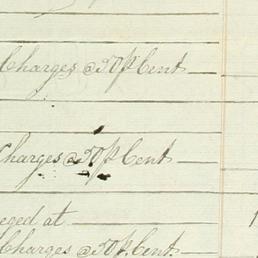 Charges @ 50 p Cent
Charges @ 50 p Cent
eged at
Charges @ 50 p. Cent.
1